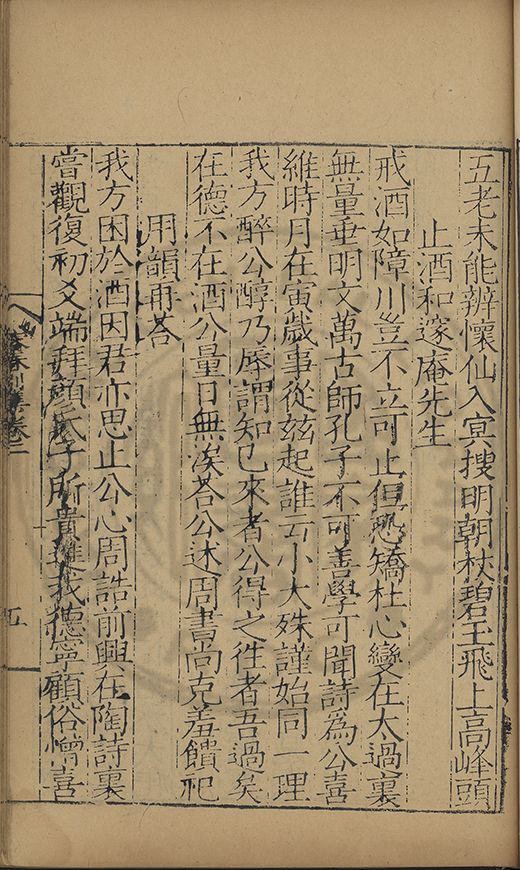 五老未能辨懷仙入冥搜明朝杖碧玉飛上高峰頭
止酒和邃庵先生
戒酒如障川豈不立可止但恐矯枉心變在太過裏
無量垂明文萬古師孔子不可善學可聞詩爲公喜
維時月在寅歲事從玆起誰云小大殊謹始同一理
我方醉公醇乃辱謂知已來者公得之徃者吾過矣
在德不在酒公量日無涘荅公述周書尚克羞饋祀
用韻再荅
我方困於酒因君亦思止公心周誥前興在陶詩裏
嘗觀復初爻端拜顔氏子所貴進我德寧顧俗情喜
卷二
五